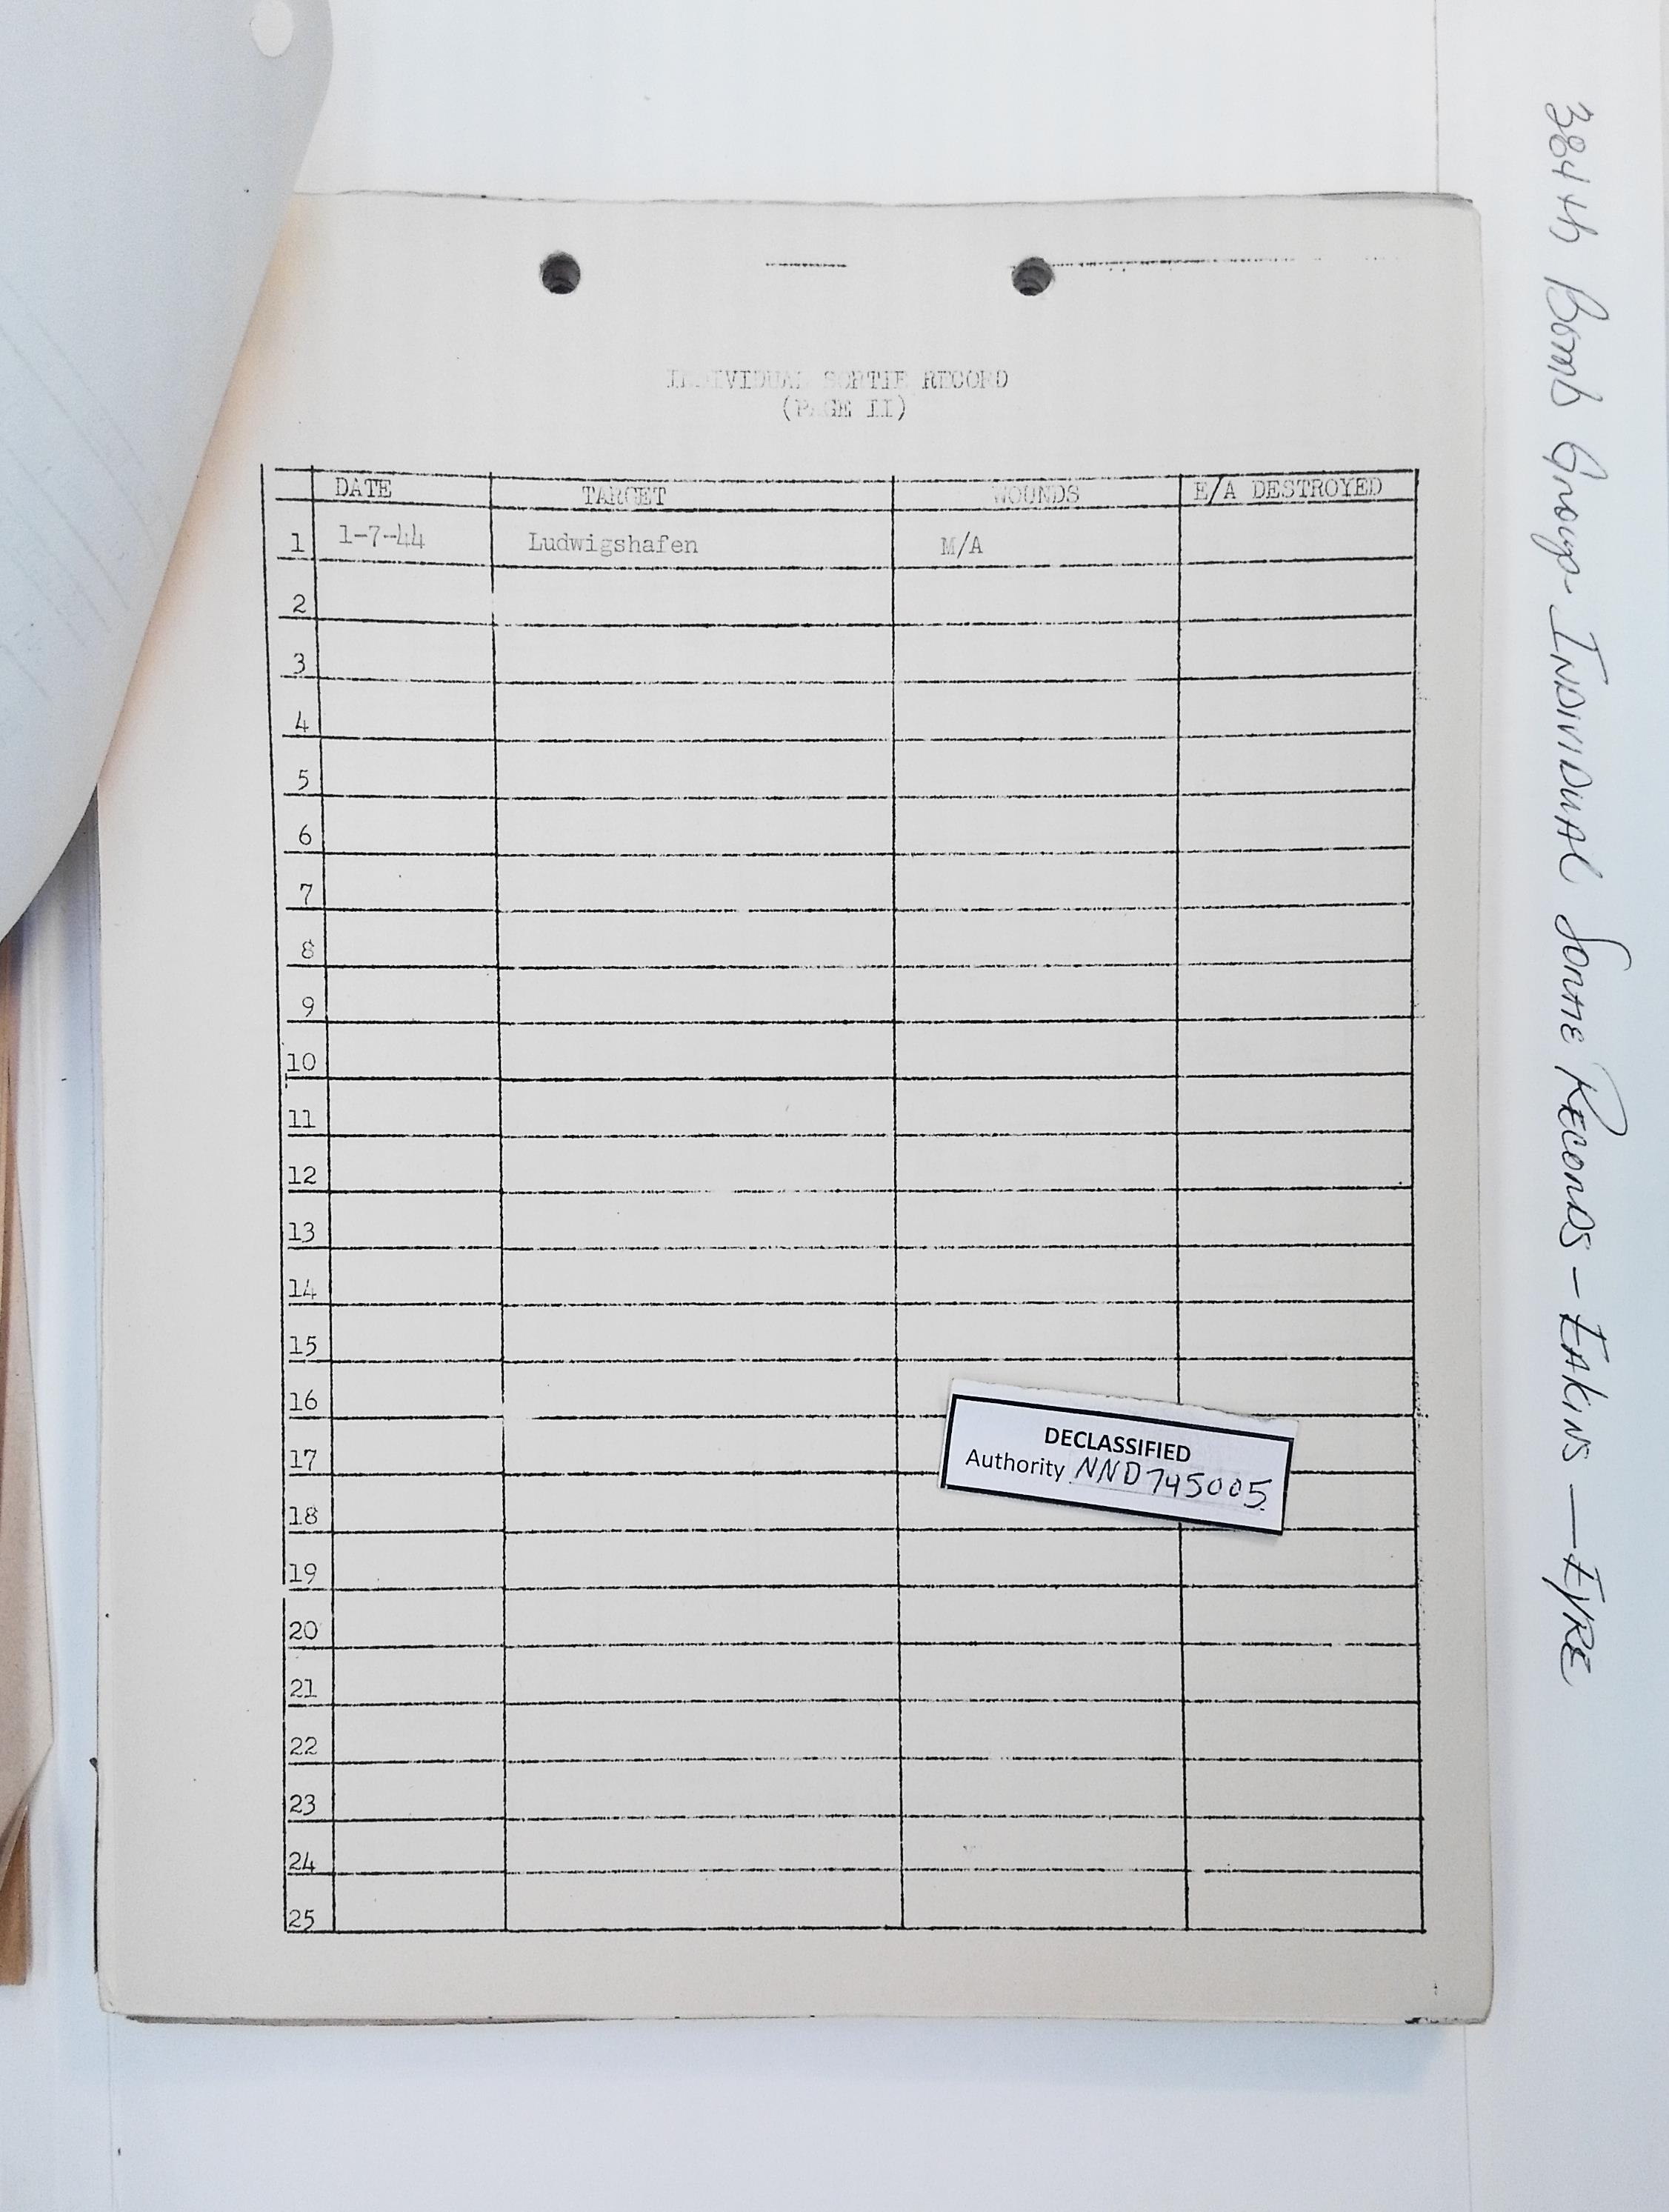 INDIVIDUAL SORTIE RECORD
(PAGE II)
DATE TARGET WOUNDS E/A DESTROYED
1 1-7-44 Ludwigshafen M/A
2
3
4
5
6
7
8
9
10
11
12
13
14
15
16
17
18
19
20
21
22
23
24
25
DECLASSIFIED
Authority NND745005
384th Bomb Group - INDIVIDUAL SORTIE RECORDS - EAKINS — EYRE